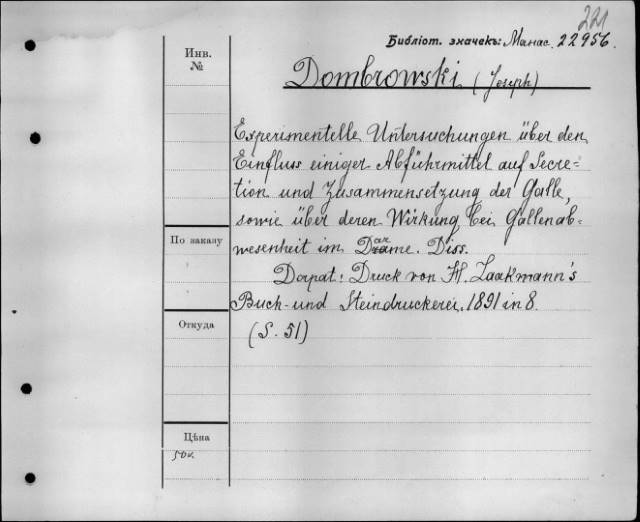 221
Библіот. значекъ: Манас. 22956.
Инв.
№
Dombrowski (Joseph)
Experimentelle Untersuchungen über den
Einfluss einiger Abführmittel auf Secre=
tion und Zusammensetzung der Galle,
sowie über deren Wirkung bei Gallenab-
wesenheit im Darme. Diss.
По заказу
Dorpat: Druck von H. Laakmann's
Buch- und Steindruckerei, 1891 in 8.
Откуда
(S. 51)
Цѣна